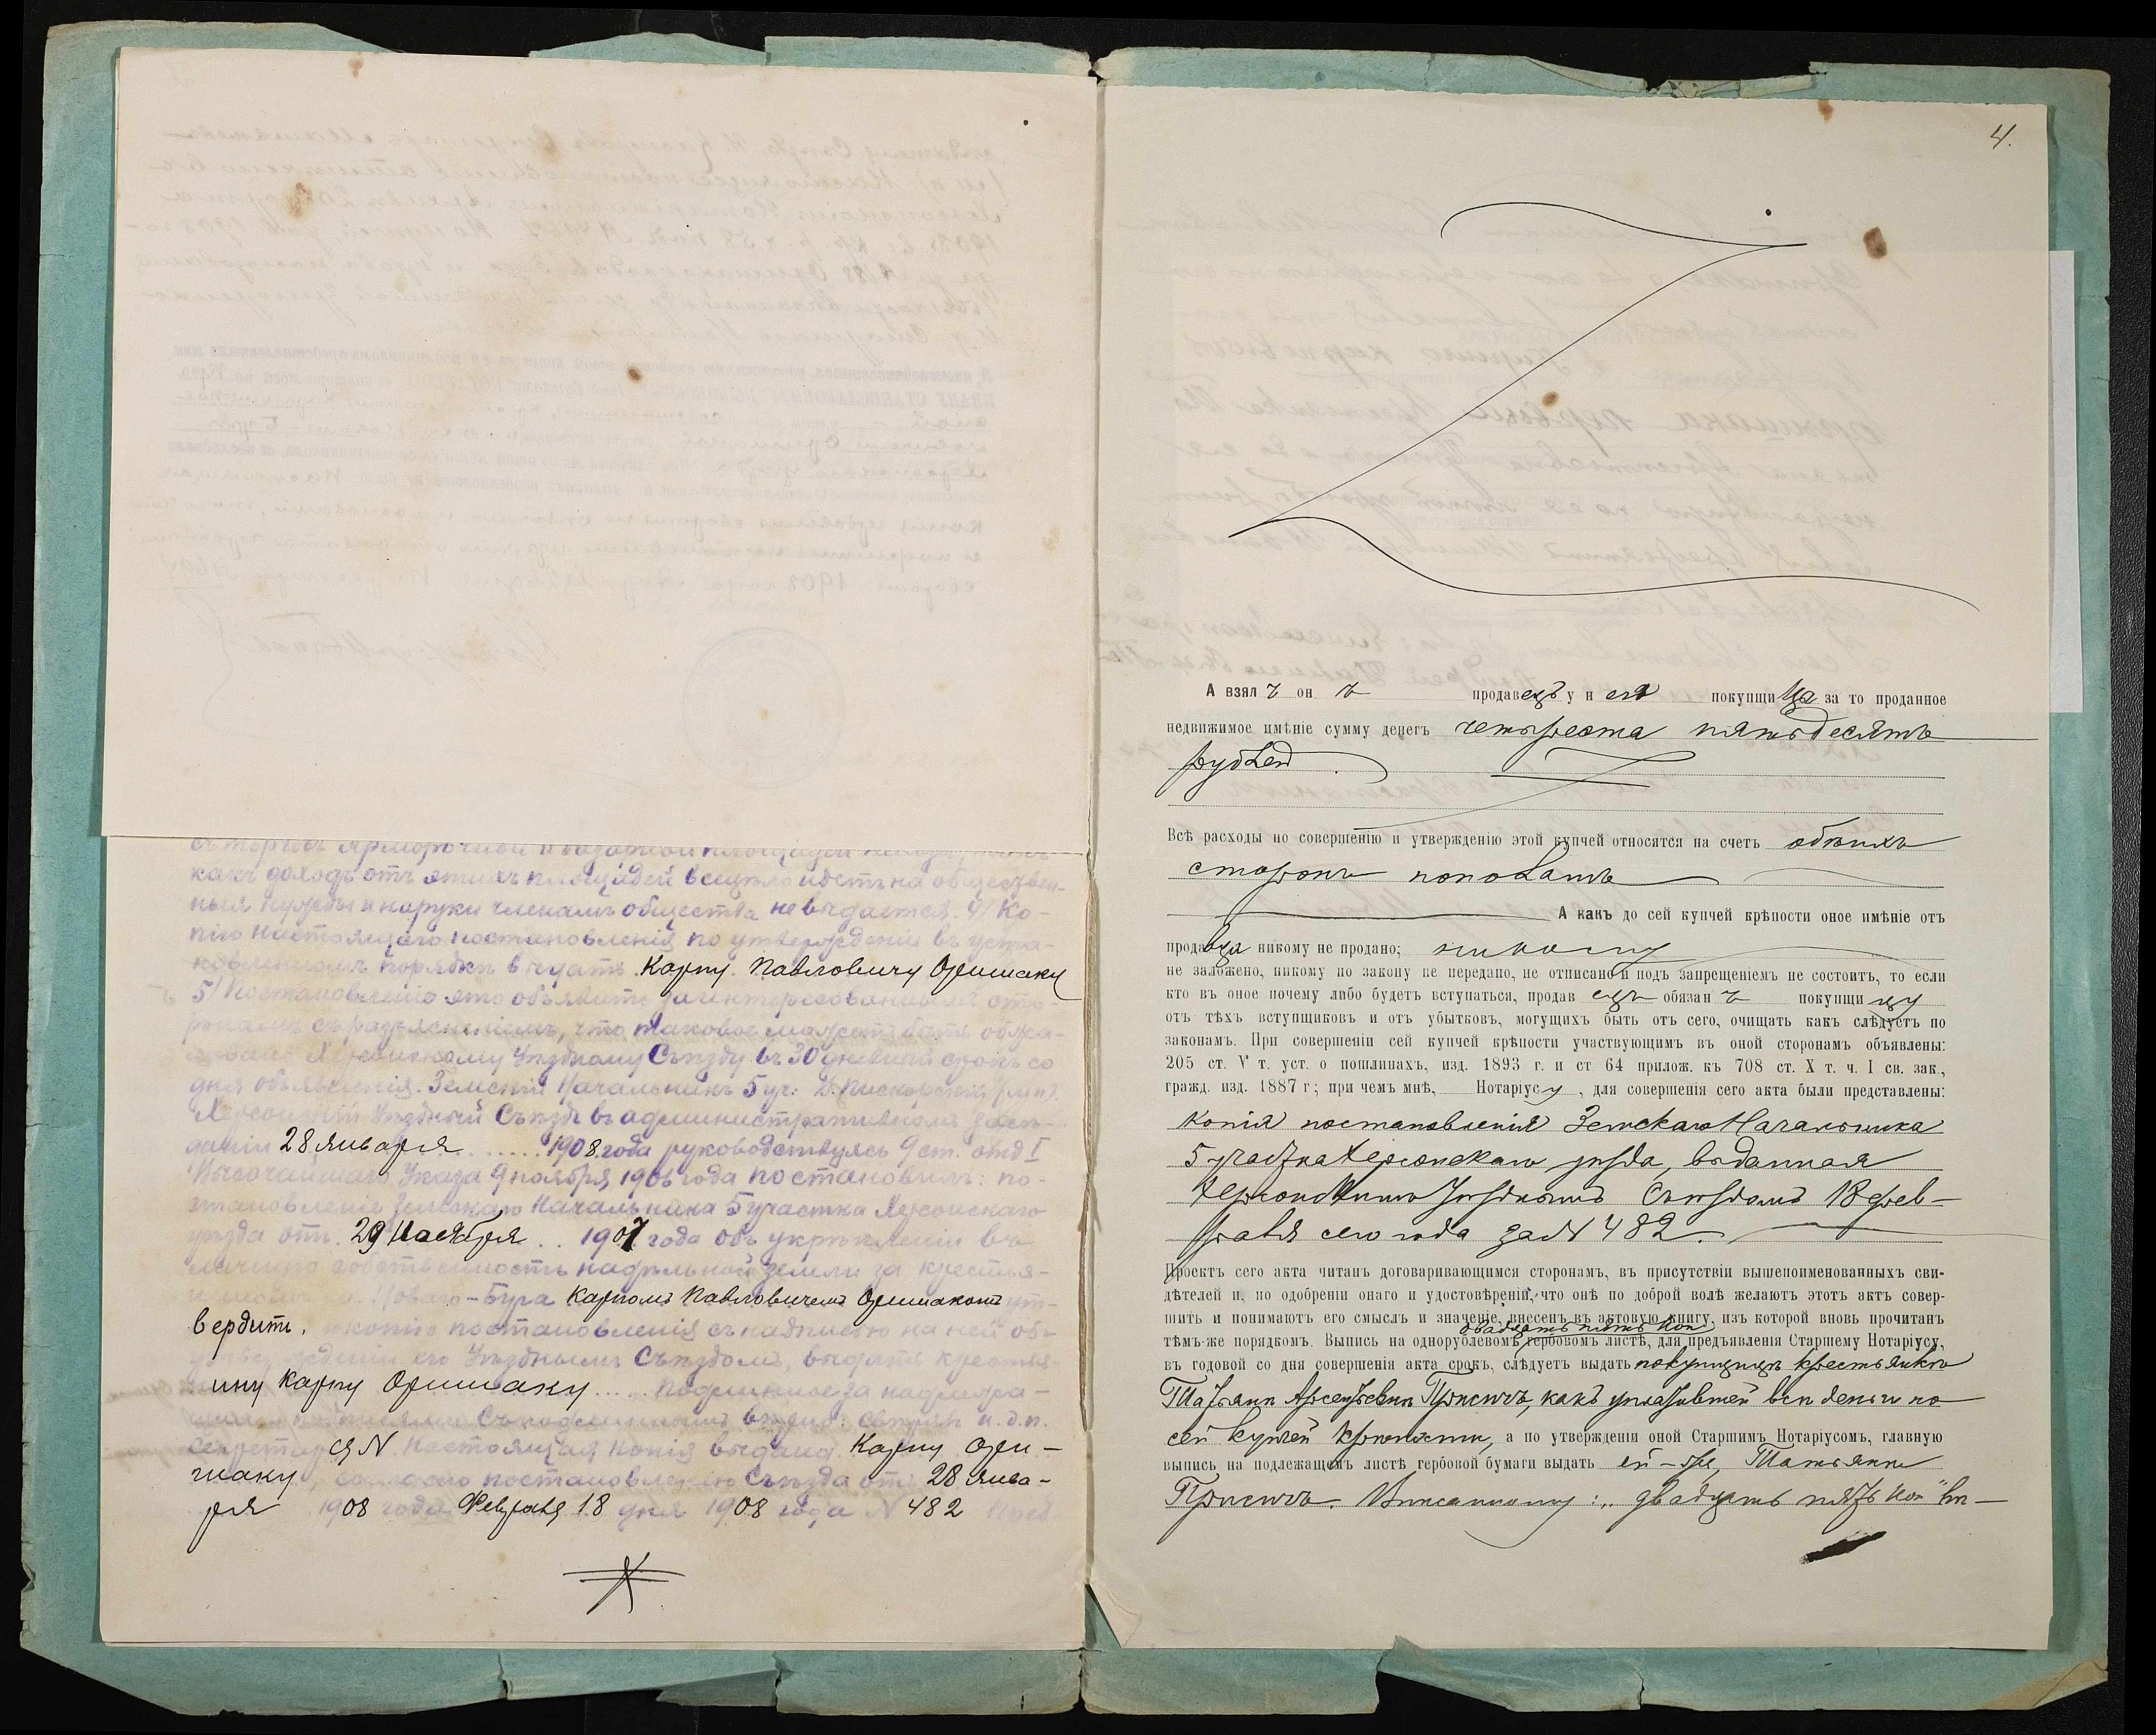 какъ доходъ отъ этихъ площадей всецѣло идетъ на обществен-
ныя нужды и на руки членамъ общества не выдается. 4/ Ко-
пію настоящаго постановленія по утвержденіи въ уста-
новленномъ порядкѣ выдать Карпу Павловичу Оришаку
5/ Постановленіе это объявить заинтересованнымъ сто-
ронамъ съ разъясненіемъ, что таковое можетъ быть обжа-
ловано Херсонскому Уѣздному Съѣзду въ 30 дневный срокъ со
дня объявленія. Земскій Начальникъ 5 уч:
Херсонскій Уѣздный Съѣздъ въ административномъ засѣ-
даніи 28 января ...... 1908 года руководствуясь 9 ст. отд I
Высочайшаго Указа 9 ноября 1906 года постановилъ: по-
становленіе Земскаго Начальника 5 участка Херсонскаго
уѣзда отъ 29 Ноября .. 1907 года объ укрѣпленіи въ
личную собственность надѣльной земли за крестья-
Новаго-Буга Карпомъ Павловичемъ Оришакомъ ут-
вердить, копію постановленія съ надписью на ней объ
утвержденіи его Уѣзднымъ Съѣздомъ, выдать крестья-
нину Карпу Оришаку ..... подлинное за надлежа-
щими подписями Съ подлиннымъ вѣрно: и. д. п.
секретаря N Настоящая копія выдана Карпу Ори-
шаку, согласно постановленію Съѣзда отъ 28 янва-
ря 1908 года Февраля 18 дня 1908 года N 482
4.
А взялъ онъ продавецъ у нея покупщицы за то проданное
недвижимое имѣніе сумму денегъ четыреста пятьдесятъ
рублей.
Всѣ расходы по совершенію и утвержденію этой купчей относятся на счетъ обѣихъ
сторонъ пополамъ
А какъ до сей купчей крѣпости оное имѣніе отъ
продавца никому не продано; никому
не заложено, никому по закону не передано, не отписано и подъ запрещеніемъ не состоитъ, то если
кто въ оное почему либо будетъ вступаться, продавецъ обязанъ покупщицу
отъ тѣхъ вступщиковъ и отъ убытковъ, могущихъ быть отъ сего, очищать какъ слѣдуетъ по
законамъ. При совершеніи сей купчей крѣпости участвующимъ въ оной сторонамъ объявлены:
205 ст. V т. уст. о пошлинахъ, изд. 1893 г. и ст 64 прилож. къ 708 ст. X т. ч. I св. зак.,
гражд. изд. 1887 г; при чемъ мнѣ, Нотаріусу, для совершенія сего акта были представлены:
копія постановленія Земскаго Начальника
5 участка Херсонскаго уѣзда, выданная
Херсонскимъ Уѣзднымъ Съѣздомъ 18 фев-
раля сего года за N 482.
Проектъ сего акта читанъ договаривающимся сторонамъ, въ присутствіи вышепоименованныхъ сви-
дѣтелей и, по одобреніи онаго и удостовѣреніи, что онѣ по доброй волѣ желаютъ этотъ актъ совер-
шить и понимаютъ его смыслъ и значеніе, внесенъ въ актовую книгу, изъ которой вновь прочитанъ
двадцать пять коп
тѣмъ-же порядкомъ. Выпись на однорублевомъ гербовомъ листѣ, для предъявленія Старшему Нотаріусу,
въ годовой со дня совершенія акта срокъ, слѣдуетъ выдать покупщицѣ крестьянкѣ
Татьянѣ Арсентьевнѣ, какъ уплатившей всѣ деньги по
сей купчей крѣпости, а по утвержденіи оной Старшимъ Нотаріусомъ, главную
выпись на подлежащемъ листѣ гербовой бумаги выдать ей-же, Татьянѣ
Вписанному: „двадцать пять коп" вѣ-